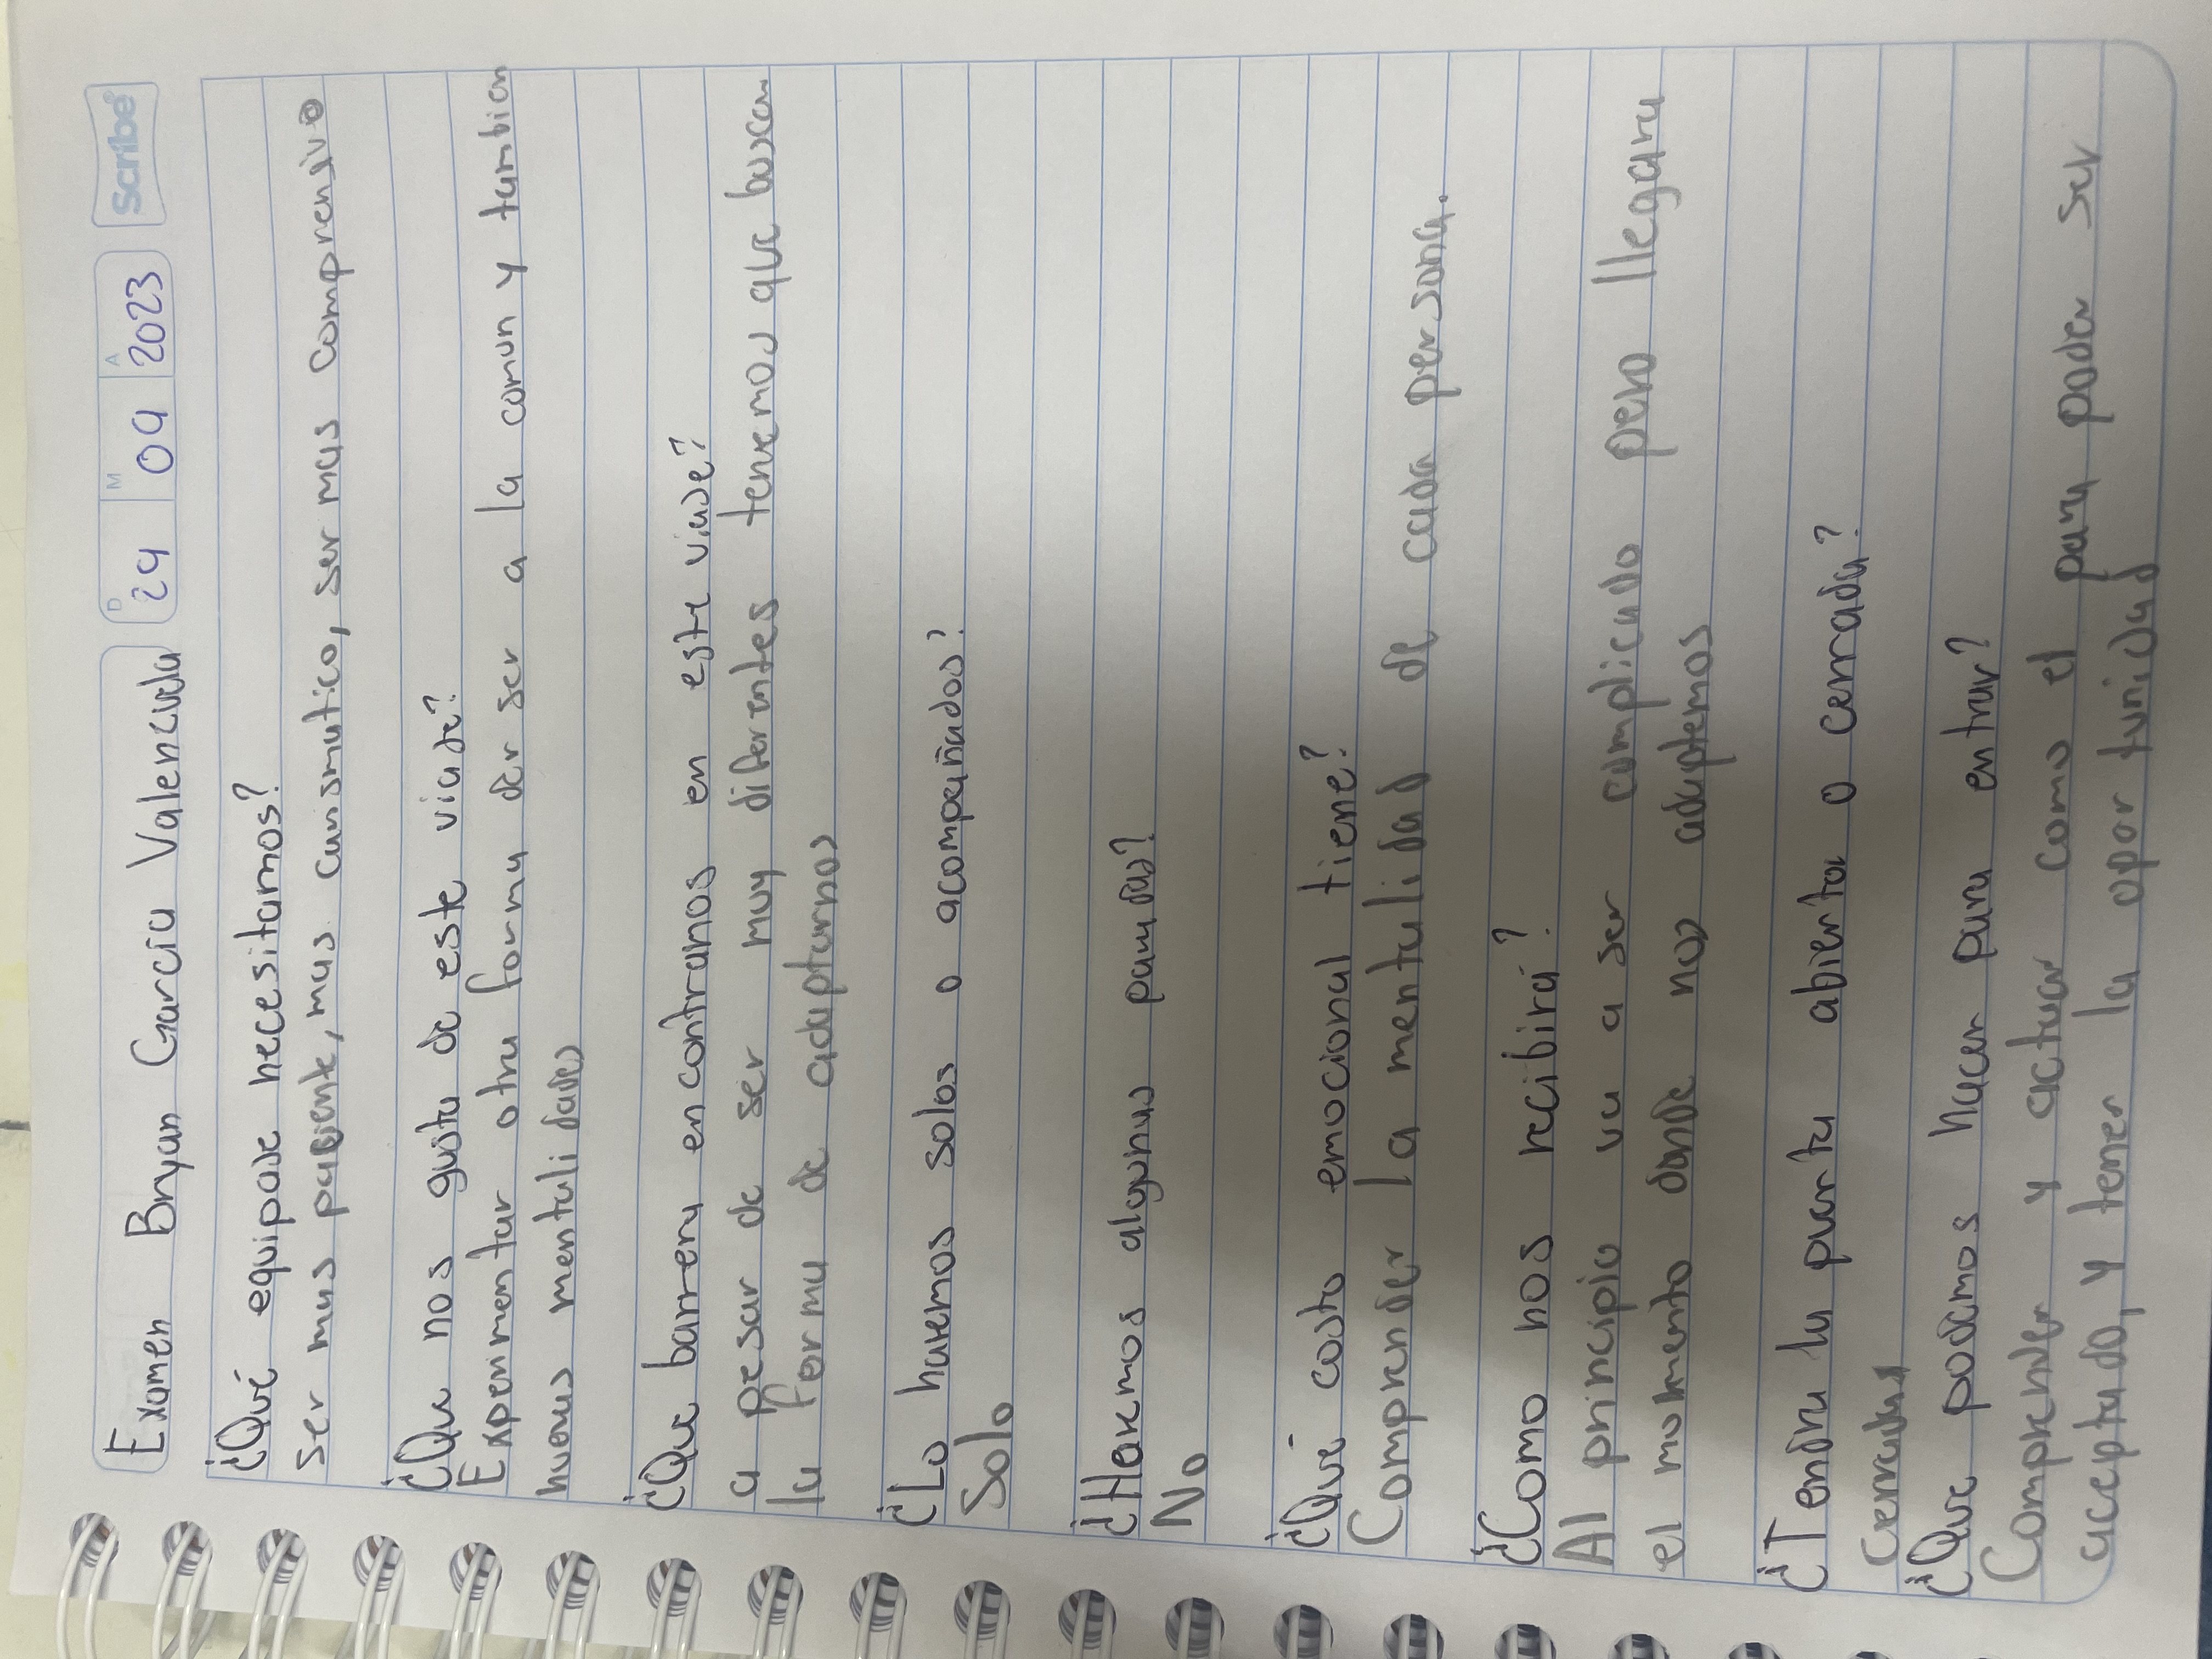 Examen Bryan García Valencuela
D M A
24 04 2023
Scribe
¿Qué equipaje necesitamos?
ser mas paciente, mas carismatico, ser mas comprensivo
¿Que nos gusta de este viaje?
Experimentar otra forma der ser a la comun y tambien
nuevas mentalidades
¿Que barrera encontramos en este viaje?
a pesar de ser muy diferentes tenemos que buscar
la forma de adaptarnos
¿Lo haremos solos o acompañados?
Solo
¿Haremos algunas paradas?
No
¿Qué costo emocional tiene?
Comprender la mentalidad de cada persona.
¿Como nos recibirá?
Al principio va a ser complicado pero llegara
el momento donde nos adaptemos
¿Tendra la puerta abierta o cerrada?
Cerrada
¿Que podemos hacer para entrar?
Comprender y actuar como el para poder ser
aceptado, y tener la oportunidad